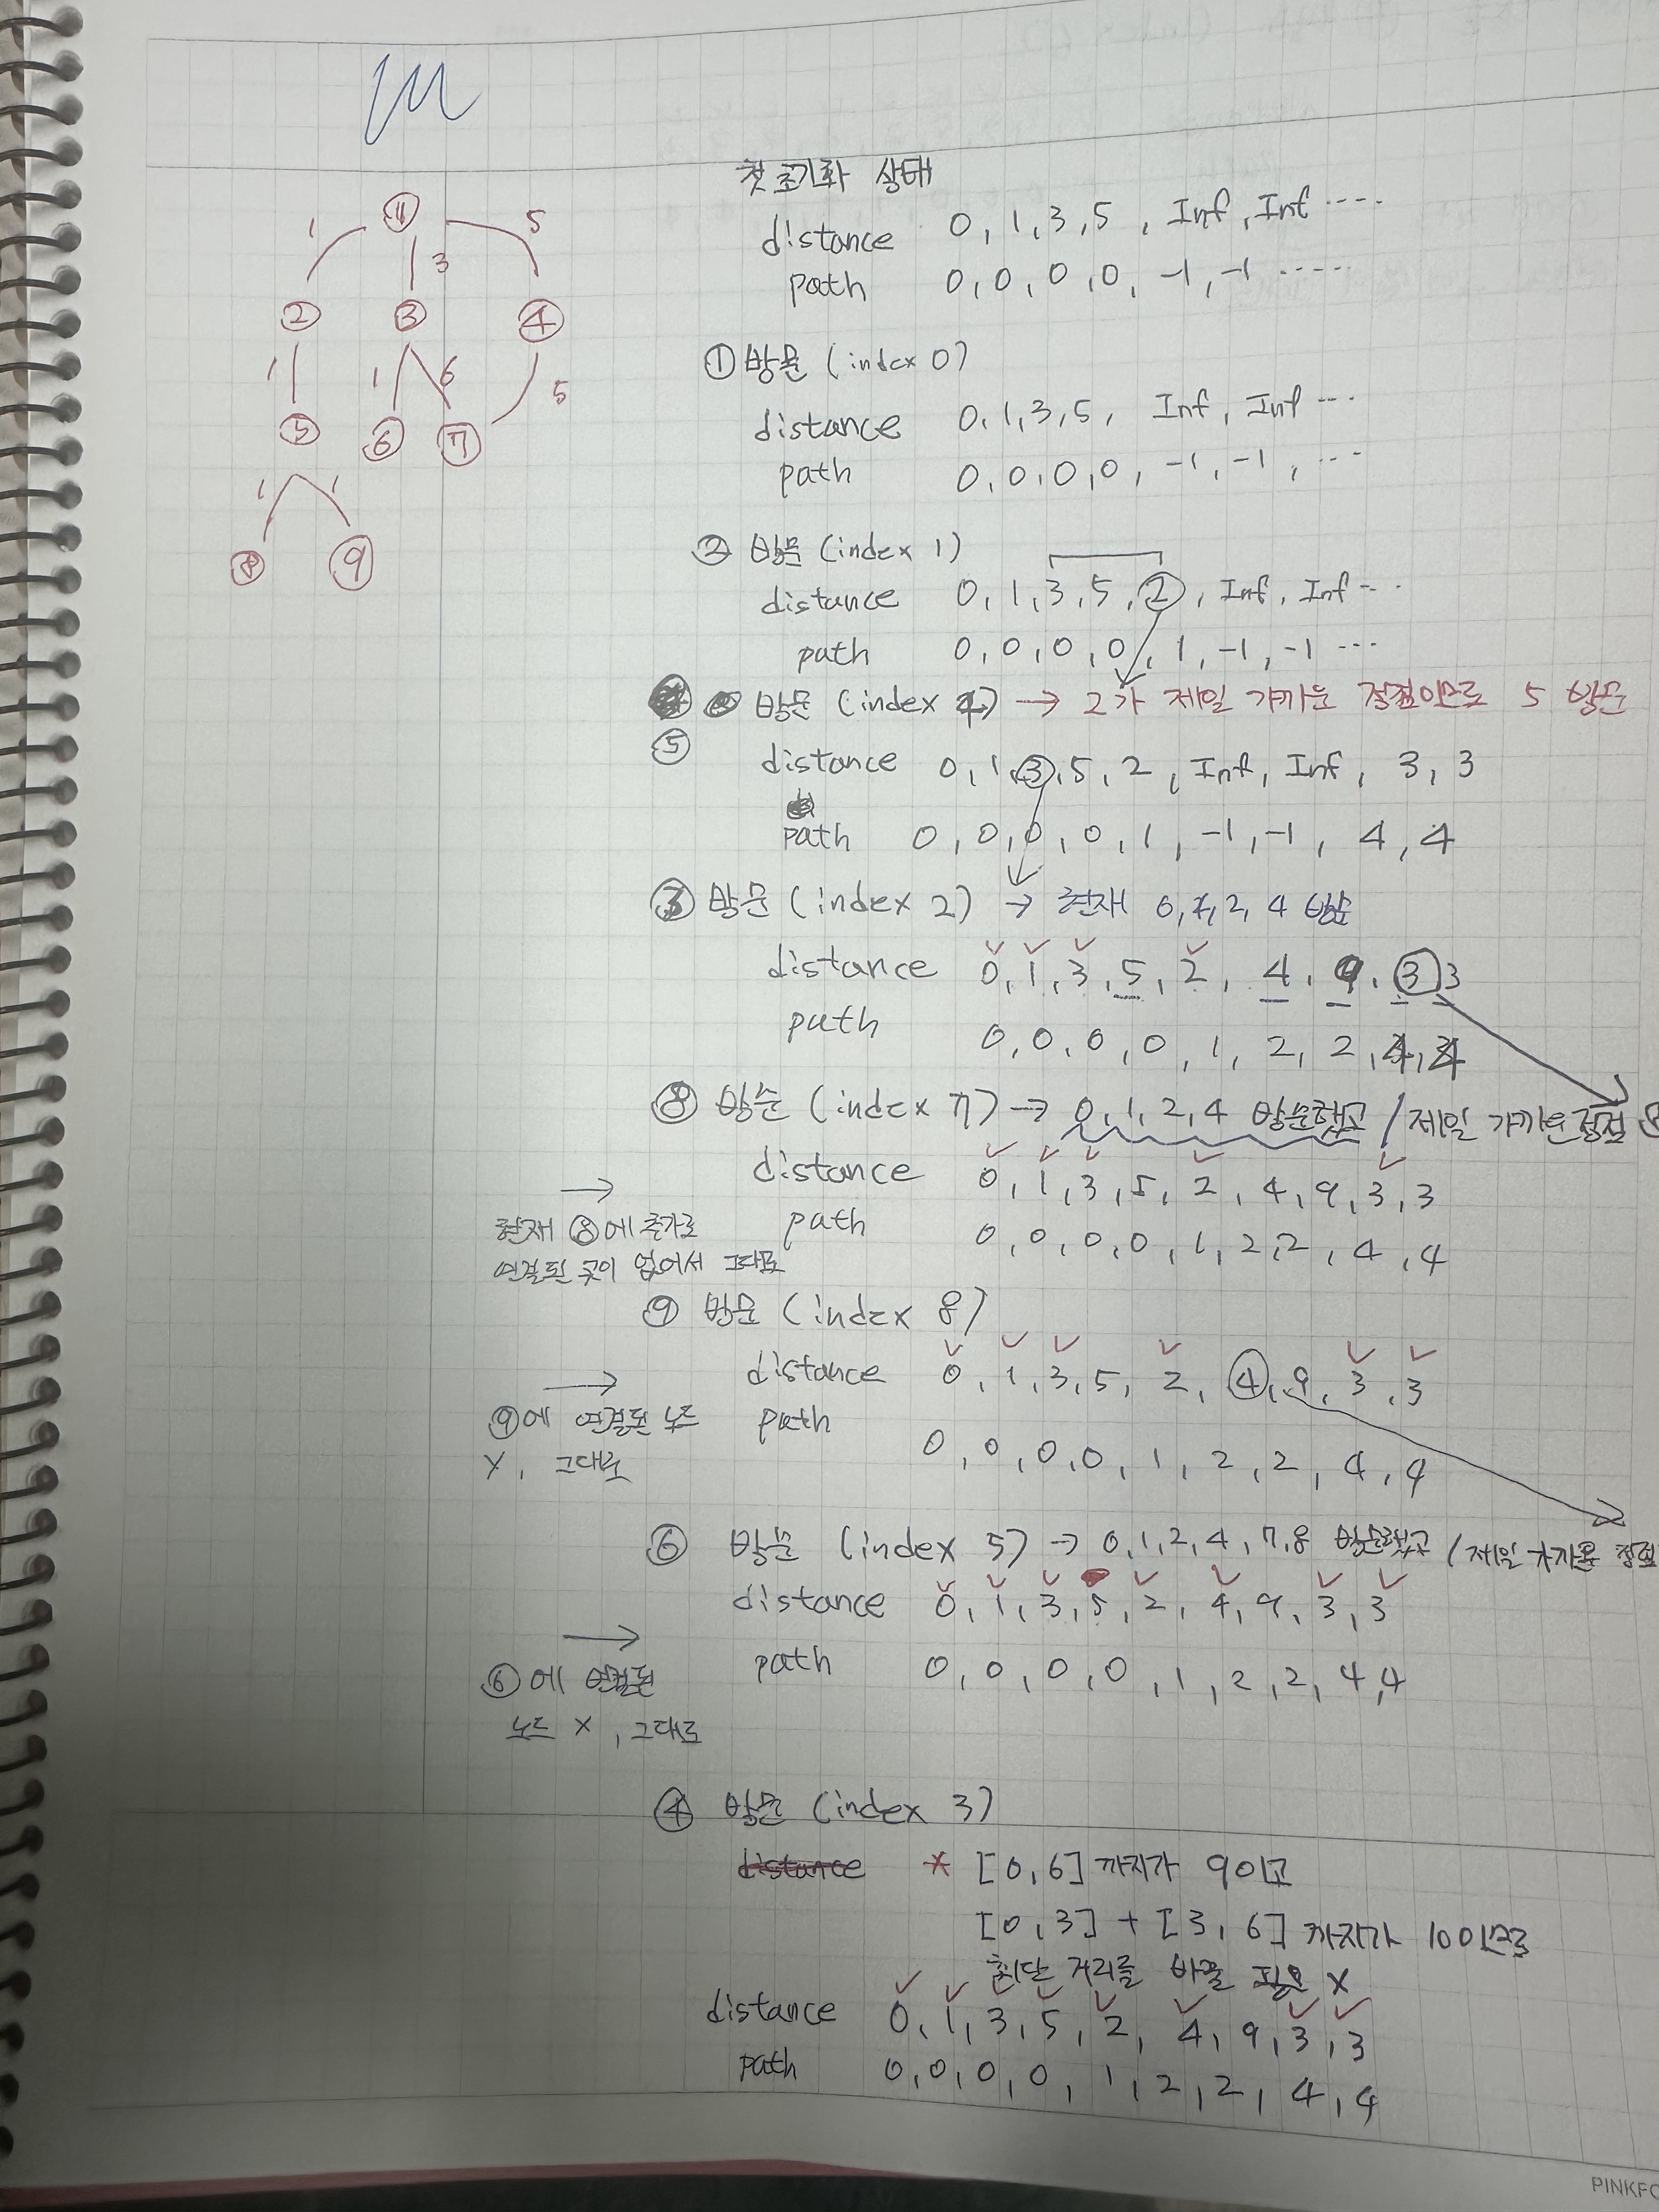 1
1 3 5
2 3 4
1 1 6 5
5 6 7
1 1
8 9
첫 초기화 상태
distance 0, 1, 3, 5, Inf, Inf ····
path 0, 0, 0, 0, -1, -1 ·····
① 방문 (index 0)
distance 0, 1, 3, 5, Inf, Inf ---
path 0, 0, 0, 0, -1, -1, ---
② 방문 (index 1)
distance 0, 1, 3, 5, ②, Inf, Inf --
path 0, 0, 0, 0, 1, -1, -1 ---
방문 (index 4) → 2가 제일 가까운 정점이므로 5 방문
⑤
distance 0, 1, ③, 5, 2, Inf, Inf, 3, 3
path 0, 0, 0, 0, 1, -1, -1, 4, 4
③ 방문 (index 2) → 현재 0, 1, 2, 4 방문
distance 0, 1, 3, 5, 2, 4, 9, ③ 3
path 0, 0, 0, 0, 1, 2, 2, 4, 4
⑧ 방문 (index 7) → 0, 1, 2, 4 방문했고 / 제일 가까운 정점 8
distance 0, 1, 3, 5, 2, 4, 9, 3, 3
path 0, 0, 0, 0, 1, 2, 2, 4, 4
→
현재 ⑧에 추가로
연결된 곳이 없어서 그대로
⑨ 방문 (index 8)
distance 0, 1, 3, 5, 2, ④, 9, 3, 3
path
0, 0, 0, 0, 1, 2, 2, 4, 4
→
⑨에 연결된 노드
X, 그대로
⑥ 방문 (index 5) → 0, 1, 2, 4, 7, 8 방문했고 / 제일 가까운 정점
distance 0, 1, 3, 5, 2, 4, 9, 3, 3
path 0, 0, 0, 0, 1, 2, 2, 4, 4
→
⑥에 연결된
노드 X, 그대로
④ 방문 (index 3)
distance * [0, 6] 까지가 9이고
[0, 3] + [3, 6] 까지가 10이므로
최단 거리를 바꿀 필요 X
distance 0, 1, 3, 5, 2, 4, 9, 3, 3
path 0, 0, 0, 0, 1, 2, 2, 4, 4